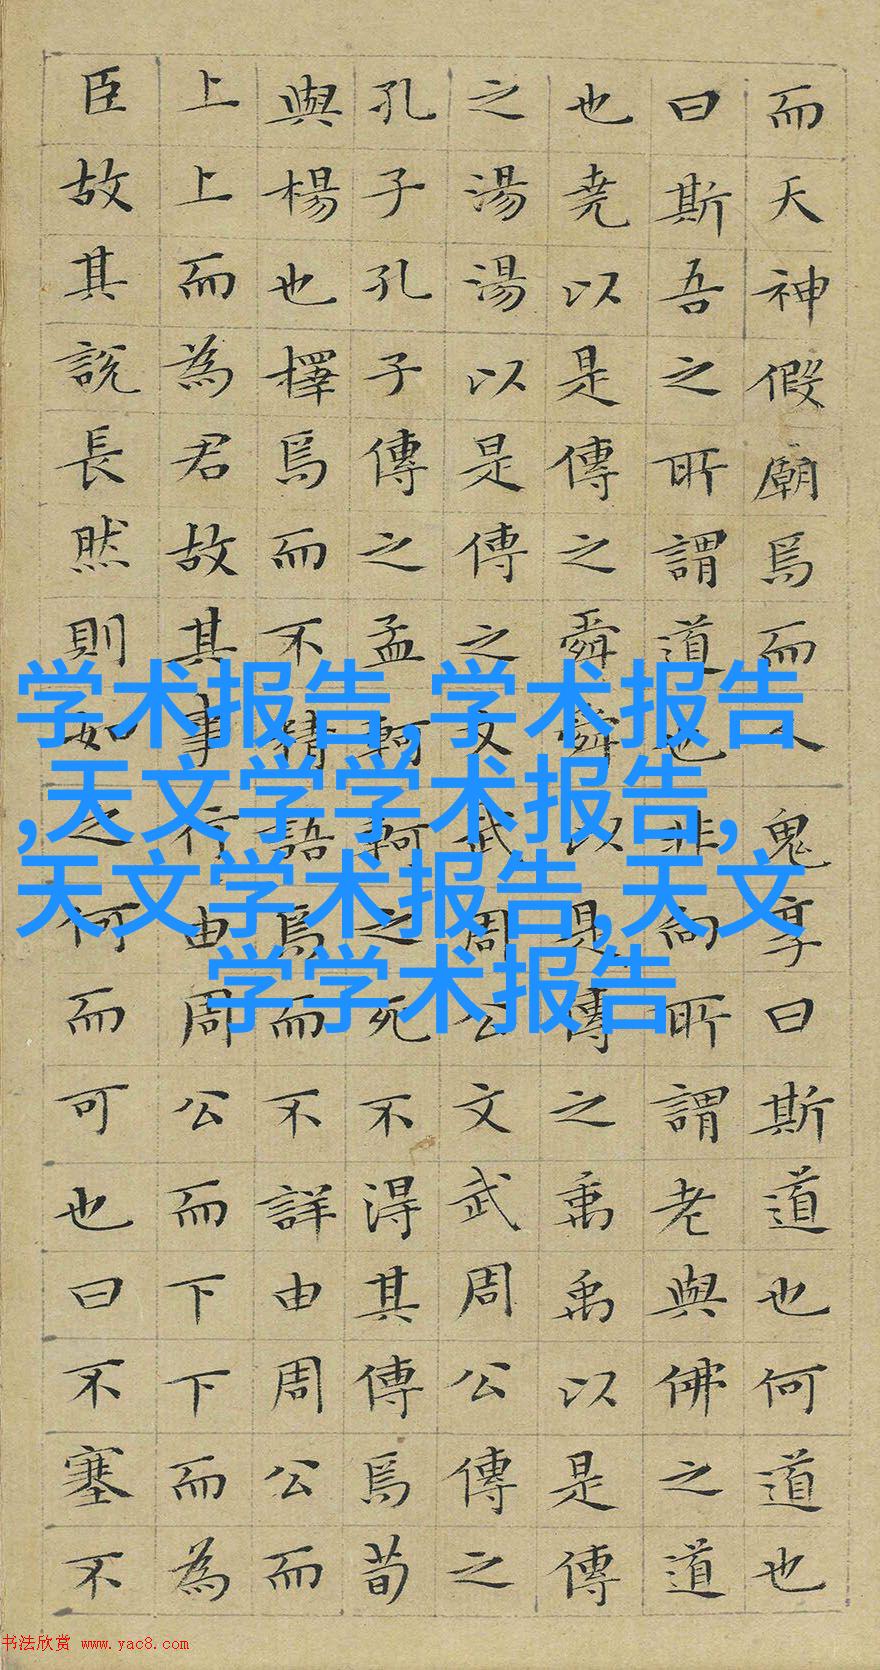 而天神假廟焉而人鬼享曰斯道也何道也
曰斯吾之所謂道也非向所謂老與佛之道
也堯以是傳之舜舜以是傳之禹禹以是傳
之湯湯以是傳之文武周公文武周公傳之
孔子孔子傳之孟軻軻之死不得其傳焉荀
與楊也擇焉而不精語焉而不詳由周公而
上上而為君故其事行由周公而下下而為
臣故其說長然則如之何而可也曰不塞不
学术报告,学术报告
,天文学学术报告,
天文学术报告,天文
学学术报告
书法欣赏 www.yac8.com